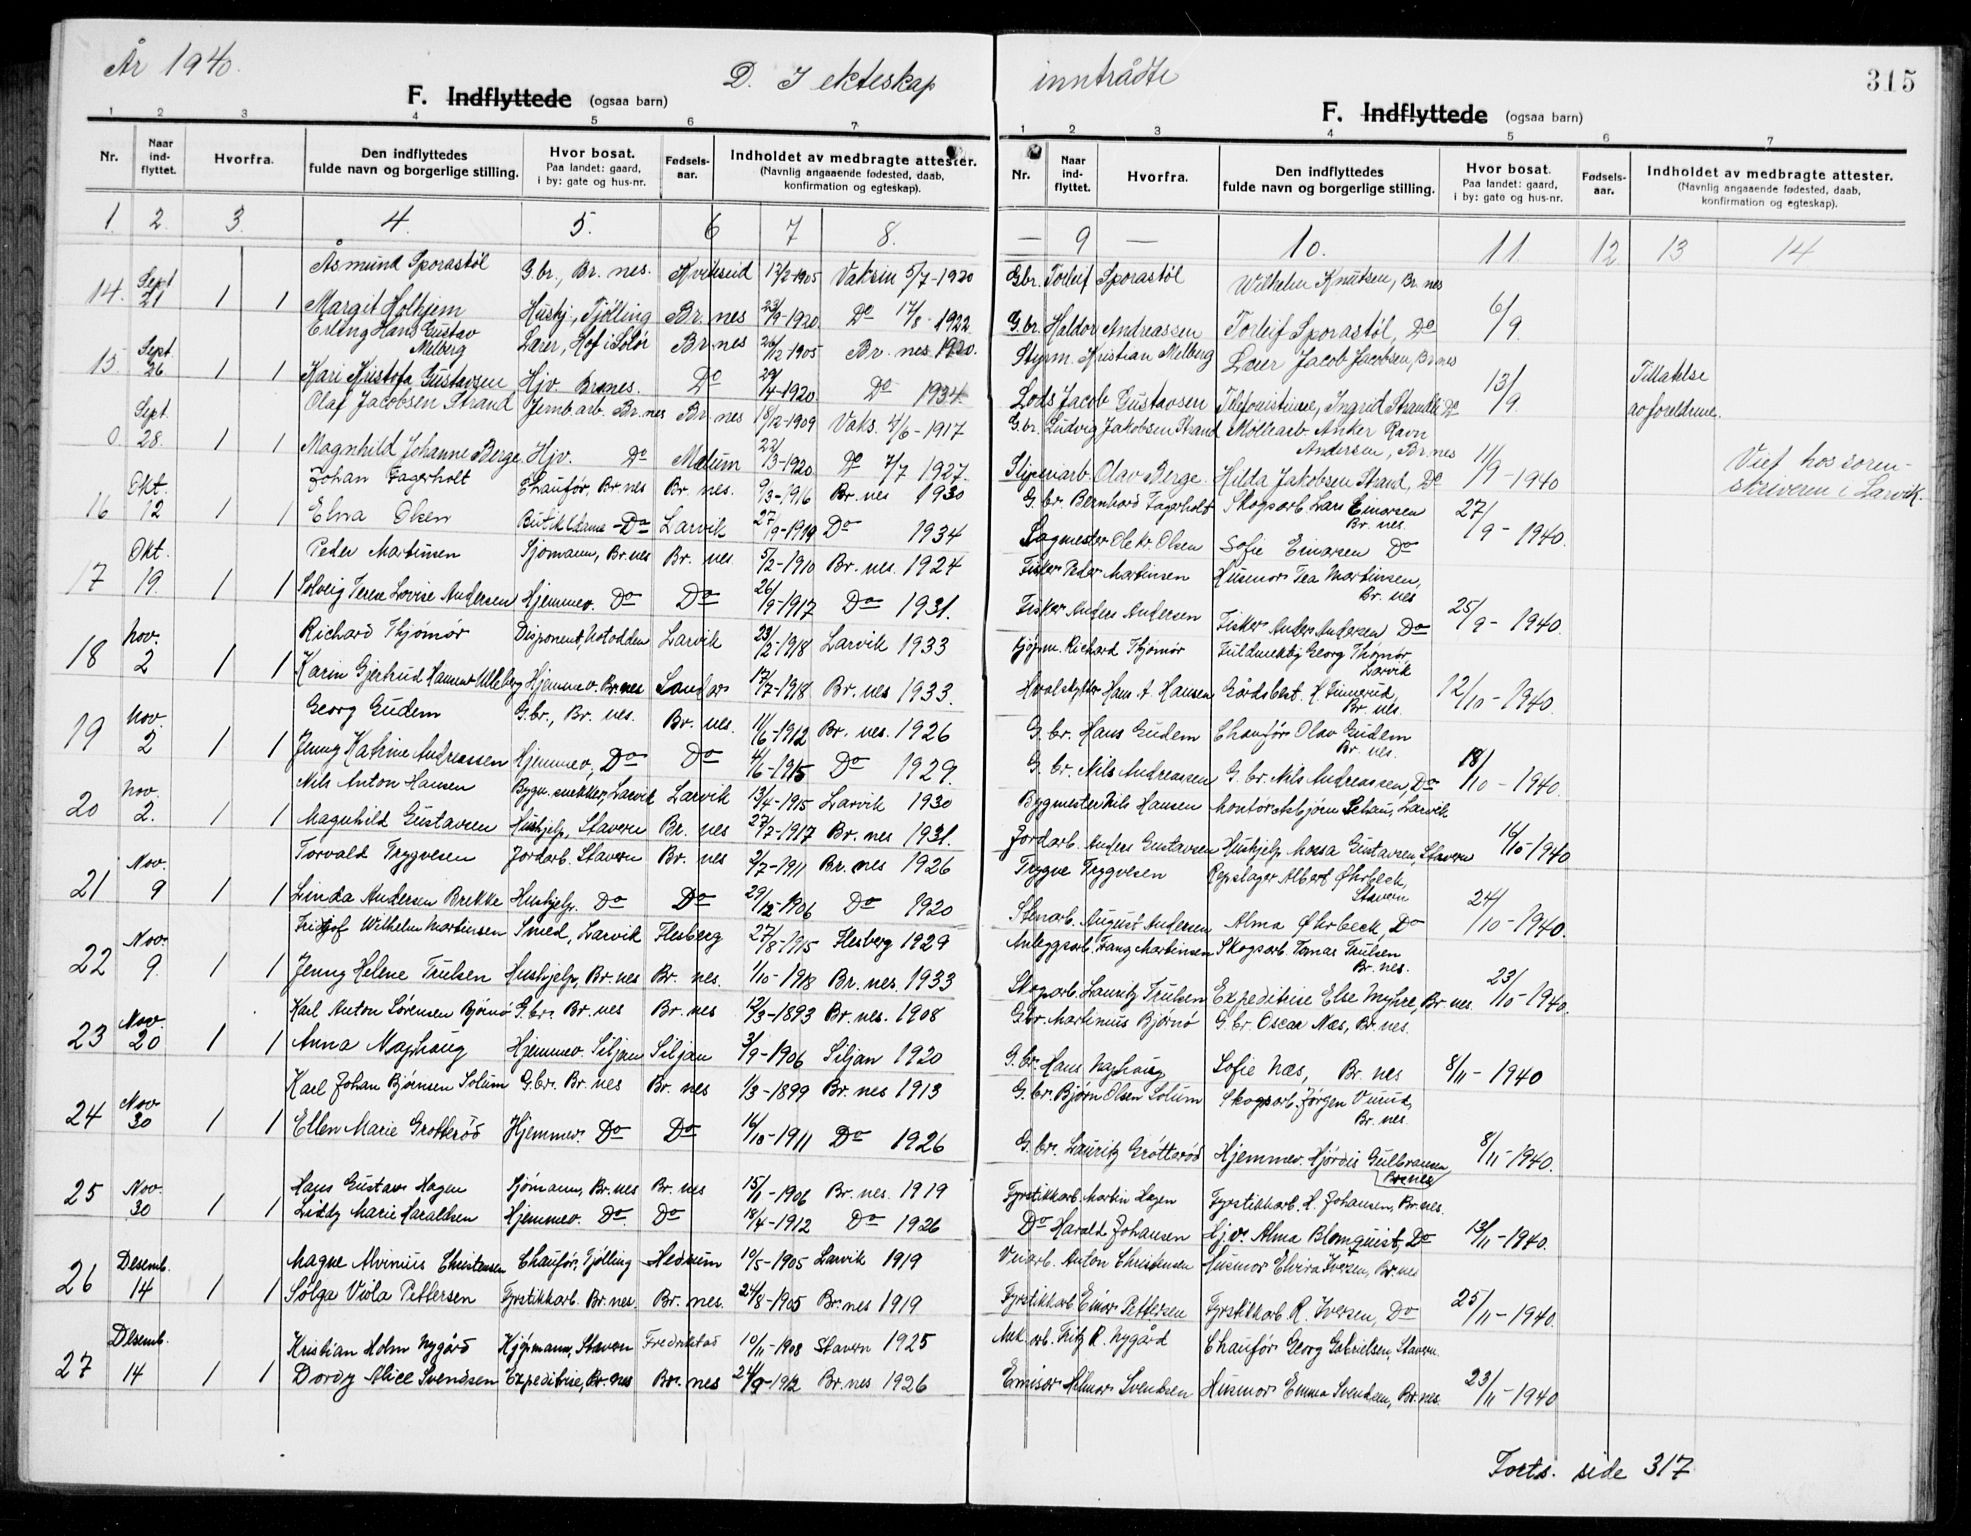 År 1940.
D. I ekteskap inntrådte
315
F. Indflyttede (ogsaa barn)
F. Indflyttede (ogsaa barn)
1 2 3 4 5 6 7
1 2 3 4 5 6 7
Nr. Naar ind-flyttet. Hvorfra. Den indflyttedes fulde navn og borgerlige stilling. Hvor bosat. Paa landet: gaard, i by: gate og hus-nr. Fødsels-aar. Indholdet av medbragte attester. (Navnlig angaaende fødested, daab, konfirmation og egteskap).
Nr. Naar ind-flyttet. Hvorfra. Den indflyttedes fulde navn og borgerlige stilling. Hvor bosat. Paa landet: gaard, i by: gate og hus-nr. Fødsels-aar. Indholdet av medbragte attester. (Navnlig angaaende fødested, daab, konfirmation og egteskap).
1. 2. 3. 4. 5. 6 7 8. — 9 — 10. 11 12 13 14
Åsmund Sporastøl G.br., Br.nes. Kviteseid 12/2-1905 Vaksin 5/7-1920 Gbr. Torleif Sporastøl Wilhelm Knutsen, Br.nes
14. Sept 21 1 1 Margit Holhjem Hushj., Tjølling Br.nes 23/9-1920. Do 17/8-1922 G.br. Haldor Andreassen Torleif Sporastøl, Do 6/9.
Erling Hans Gustav Melberg Lærer, Hof i Solør Br.nes 26/12-1905 Br.nes 1920. Styrm. Kristian Melberg Lærer Jacob Jacobsen, Br.nes
15 Sept. 26 1 1 Kari Kristofa Gustavsen Hjv. Br.nes. Do 29/7-1920. Do 1934. Lods Jacob Gustavsen Telefonistinne, Ingrid Strandli Do 13/9. Tillatelse av foreldrene.
Olaf Jacobsen Strand Jernb.arb. Br.nes Br.nes 18/12-1909 Vaks. 4/6-1917 G.br. Ludvig Jakobsen Strand Møllearb. Anker Ravn Andersen, Br.nes
0 Sept. 28. 1 1 Magnhild Johanne Berge Hjv. Do Mælum 22/3-1920 Do 7/7 1927. Slipsarb. Olav Berge. Hilda Jakobsen Strand, Do 11/9-1940 Viet hos soren-skriveren i Larvik.
Johan Fagerholt Chaufør, Br.nes Br.nes. 9/3-1916 Br.nes 1930 G.br Bernhard Fagerholt Skogsarb. Lars Einarsen Br.nes.
16 Okt. 12 1 1 Elna Olsen Butikkdame - Do Larvik 27/9-1919 Do 1934 Sagmester Ole Kr. Olsen Sofie Einarsen Do 27/9-1940.
Peder Martinsen Sjømann, Br.nes Br.nes 5/2-1910 Br.nes. 1924 Fisker Peder Martinsen Husmor Tea Martinsen, Br.nes
17 Okt. 19. 1 1 Solveig Terese Lovise Andersen Hjemmev. Do Do 26/9-1917 Do 1931. Fisker Anders Andersen Fisker Anders Andersen Do 25/9-1940.
Richard Thjømør Disponent, Notodden Larvik 23/2-1918 Larvik 1933 Kjøpm. Richard Thjømør Fuldmektig Georg Thjømør Larvik
18 Nov. 2 1 1 Karin Gjertrud Hansen Ulleberg Hjemmev. Br.nes Sandar 17/7-1918 Br.nes 1933. Hvalskytter Hans A. Hansen Gårdsbest. K. Finnerud, Br.nes. 12/10-1940.
Georg Gudem G.br., Br.nes. Br.nes. 11/6-1912 Br.nes. 1926 G.br. Hans Gudem Chaufør Olav Gudem Br.nes.
19 Nov. 2 1 1 Jenny Katrine Andreassen Hjemmev., Do Do 4/6-1915 Do 1929. G.br. Nils Andreassen G.br. Nils Andreassen, Do 18/10-1940.
Nils Anton Hansen Bygn.snekker, Larvik Larvik 13/4-1915 Larvik 1930 Bygmester Nils Hansen Kontorist Asbjørn Schau, Larvik
20 Nov. 2. 1 1 Magnhild Gustavsen Hushjelp, Stavern Br.nes 27/7-1917 Br.nes 1931. Jordarb. Anders Gustavsen Hushjelp Mossa Gustavsen, Stavern 16/10-1940
Torvald Trygvesen Jordarb. Stavern Br.nes 2/7-1911 Br.nes 1926 Trygve Trygvesen Repslager Albert Øhrbeck, Stavern
21 Nov. 9 1 1 Linda Andersen Brekke Hushjelp. Do Do 29/12-1906 Do 1920 Stenarb. August Andersen Alma Øhrbeck, Do 24/10-1940.
Fridtjof Wilhelm Martinsen Smed, Larvik Flesberg 27/8-1915 Flesberg 1929 Anleggsarb. Franz Martinsen Skogsarb. Tomas Trulsen Br.nes.
22 Nov. 9. 1 1 Jenny Helene Trulsen Hushjelp, Br.nes Br.nes. 1/10-1918 Br.nes. 1933 Skogarb. Lauritz Trulsen Expeditrise Else Myhre, Br.nes. 23/10-1940.
Karl Anton Sørensen Bjørnø G.br. Br.nes Br.nes 12/3-1893 Br.nes. 1908 Gbr. Martinius Bjørnø G.br. Oscar Næs, Br.nes.
23 Nov. 20 1 1 Anna Naphaug Hjemmev. Siljan Siljan 3/9-1906 Siljan 1920 G.br. Hans Naphaug Sofie Næs, Br.nes 8/11-1940
Karl Johan Bjørnsen Solum G.br. Br.nes Br.nes 1/3-1899 Br.nes 1913 G.br. Bjørn Olsen Solum Skogsarb. Jørgen Vemud, Br.nes.
24 Nov. 30 1 1 Ellen Marie Grøtterød Hjemmev. Do Do 16/10-1911 Do 1926 G.br. Lauritz Grøtterød Hjemmev. Hjørdis Gulbransen, Br.nes 8/11-1940.
25 Nov. 30 1 1 Hans Gustav Hagen Sjømann, Br.nes Br.nes 15/1-1906 Br.nes. 1919 Fyrstikkarb. Martin Hagen Fyrstikkarb. K. Johansen, Br.nes.
Liddy Marie Haraldsen Hjemmev. Do Do 18/4-1912 Do 1926 Do Harald Johansen Hj.v. Alma Blomquist, Do 13/11-1940.
Magne Alvinius Christensen Chaufør, Tjølling Hedrum 10/5-1905 Larvik 1919 Veiarb. Anton Christensen Husmor Elvira Iversen, Br.nes
26 Desemb. 14 1 1 Solga Viola Pettersen Fyrstikkarb. Br.nes. Br.nes. 24/8-1905 Br.nes 1919 Fyrstikkarb Einar Pettersen Fyrstikkarb. R. Iversen, Do 25/11-1940.
Kristian Holm Nygård Kjøpmann, Stavern Fredrikstad 10/11-1908 Stavern 1925 Mek. arb. Fritz R. Nygård Chaufør Georg Gabrielsen, Stavern.
27 Desemb. 14 1 1 Dordy Alice Svendsen Expeditrise, Br.nes Br.nes 24/9-1912 Br.nes 1926 Emisær Hilmar Svendsen Husmor Emma Svendsen, Br.nes. 23/11-1940
Forts. side 317